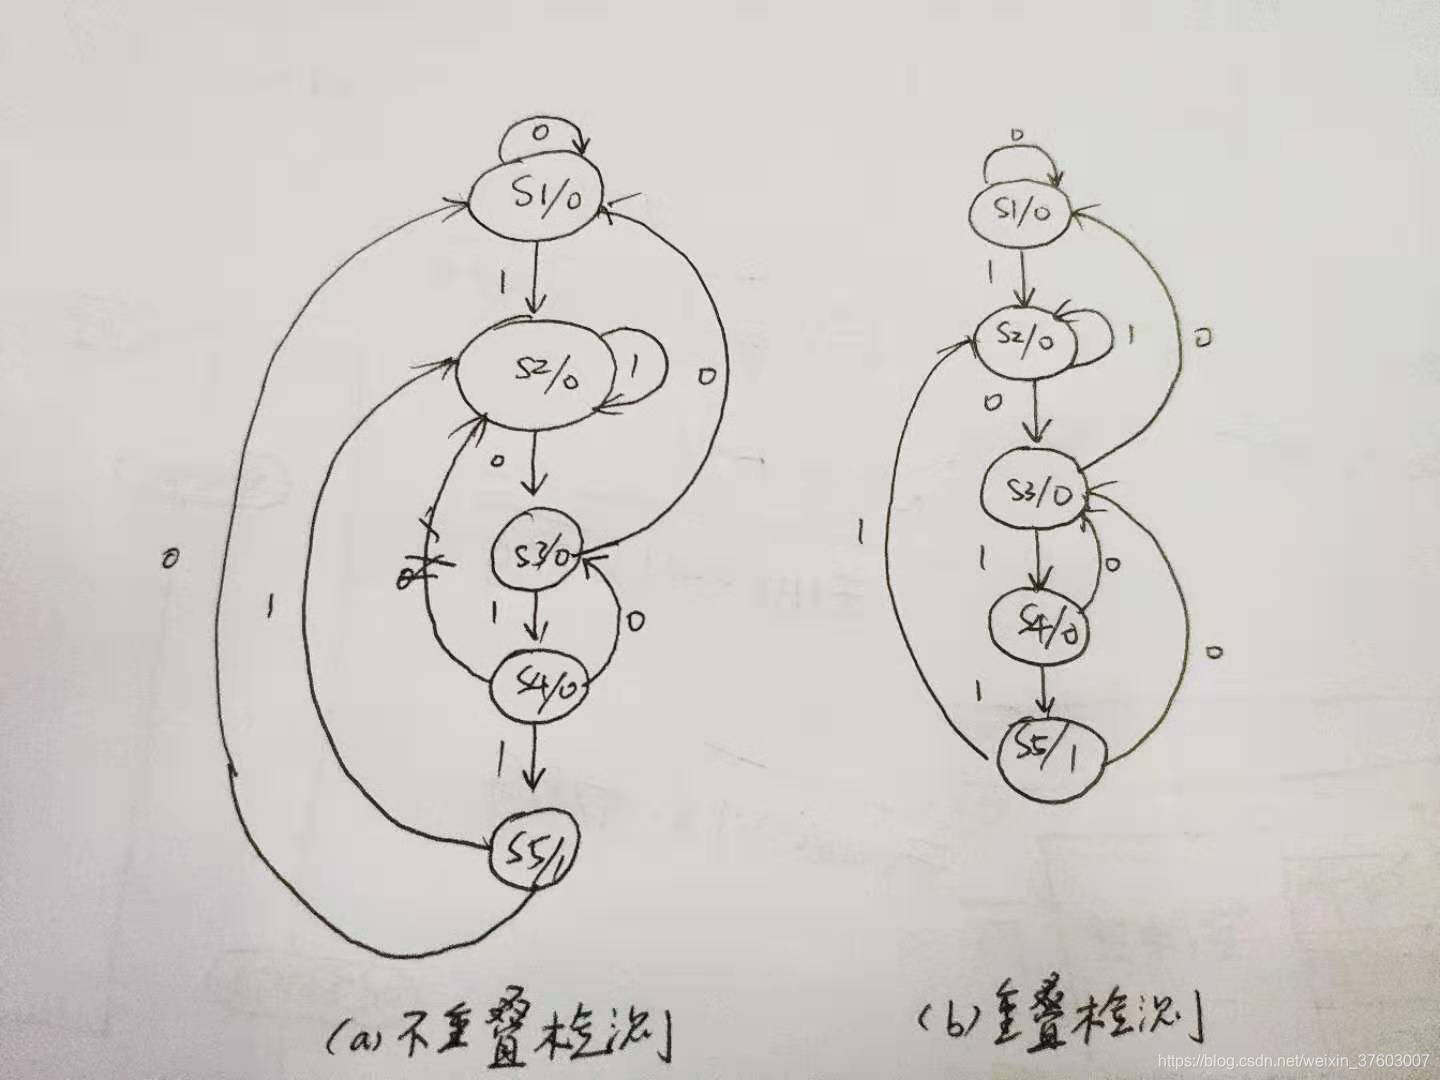 0
S1/0
1
S2/0
1
0
0
S3/0
0
1
0
1
0
S4/0
1
S5/1
(a) 不重叠检测
0
S1/0
1
S2/0
1
0
0
S3/0
1
1
0
S4/0
0
1
S5/1
(b) 重叠检测
https://blog.csdn.net/weixin_37603007